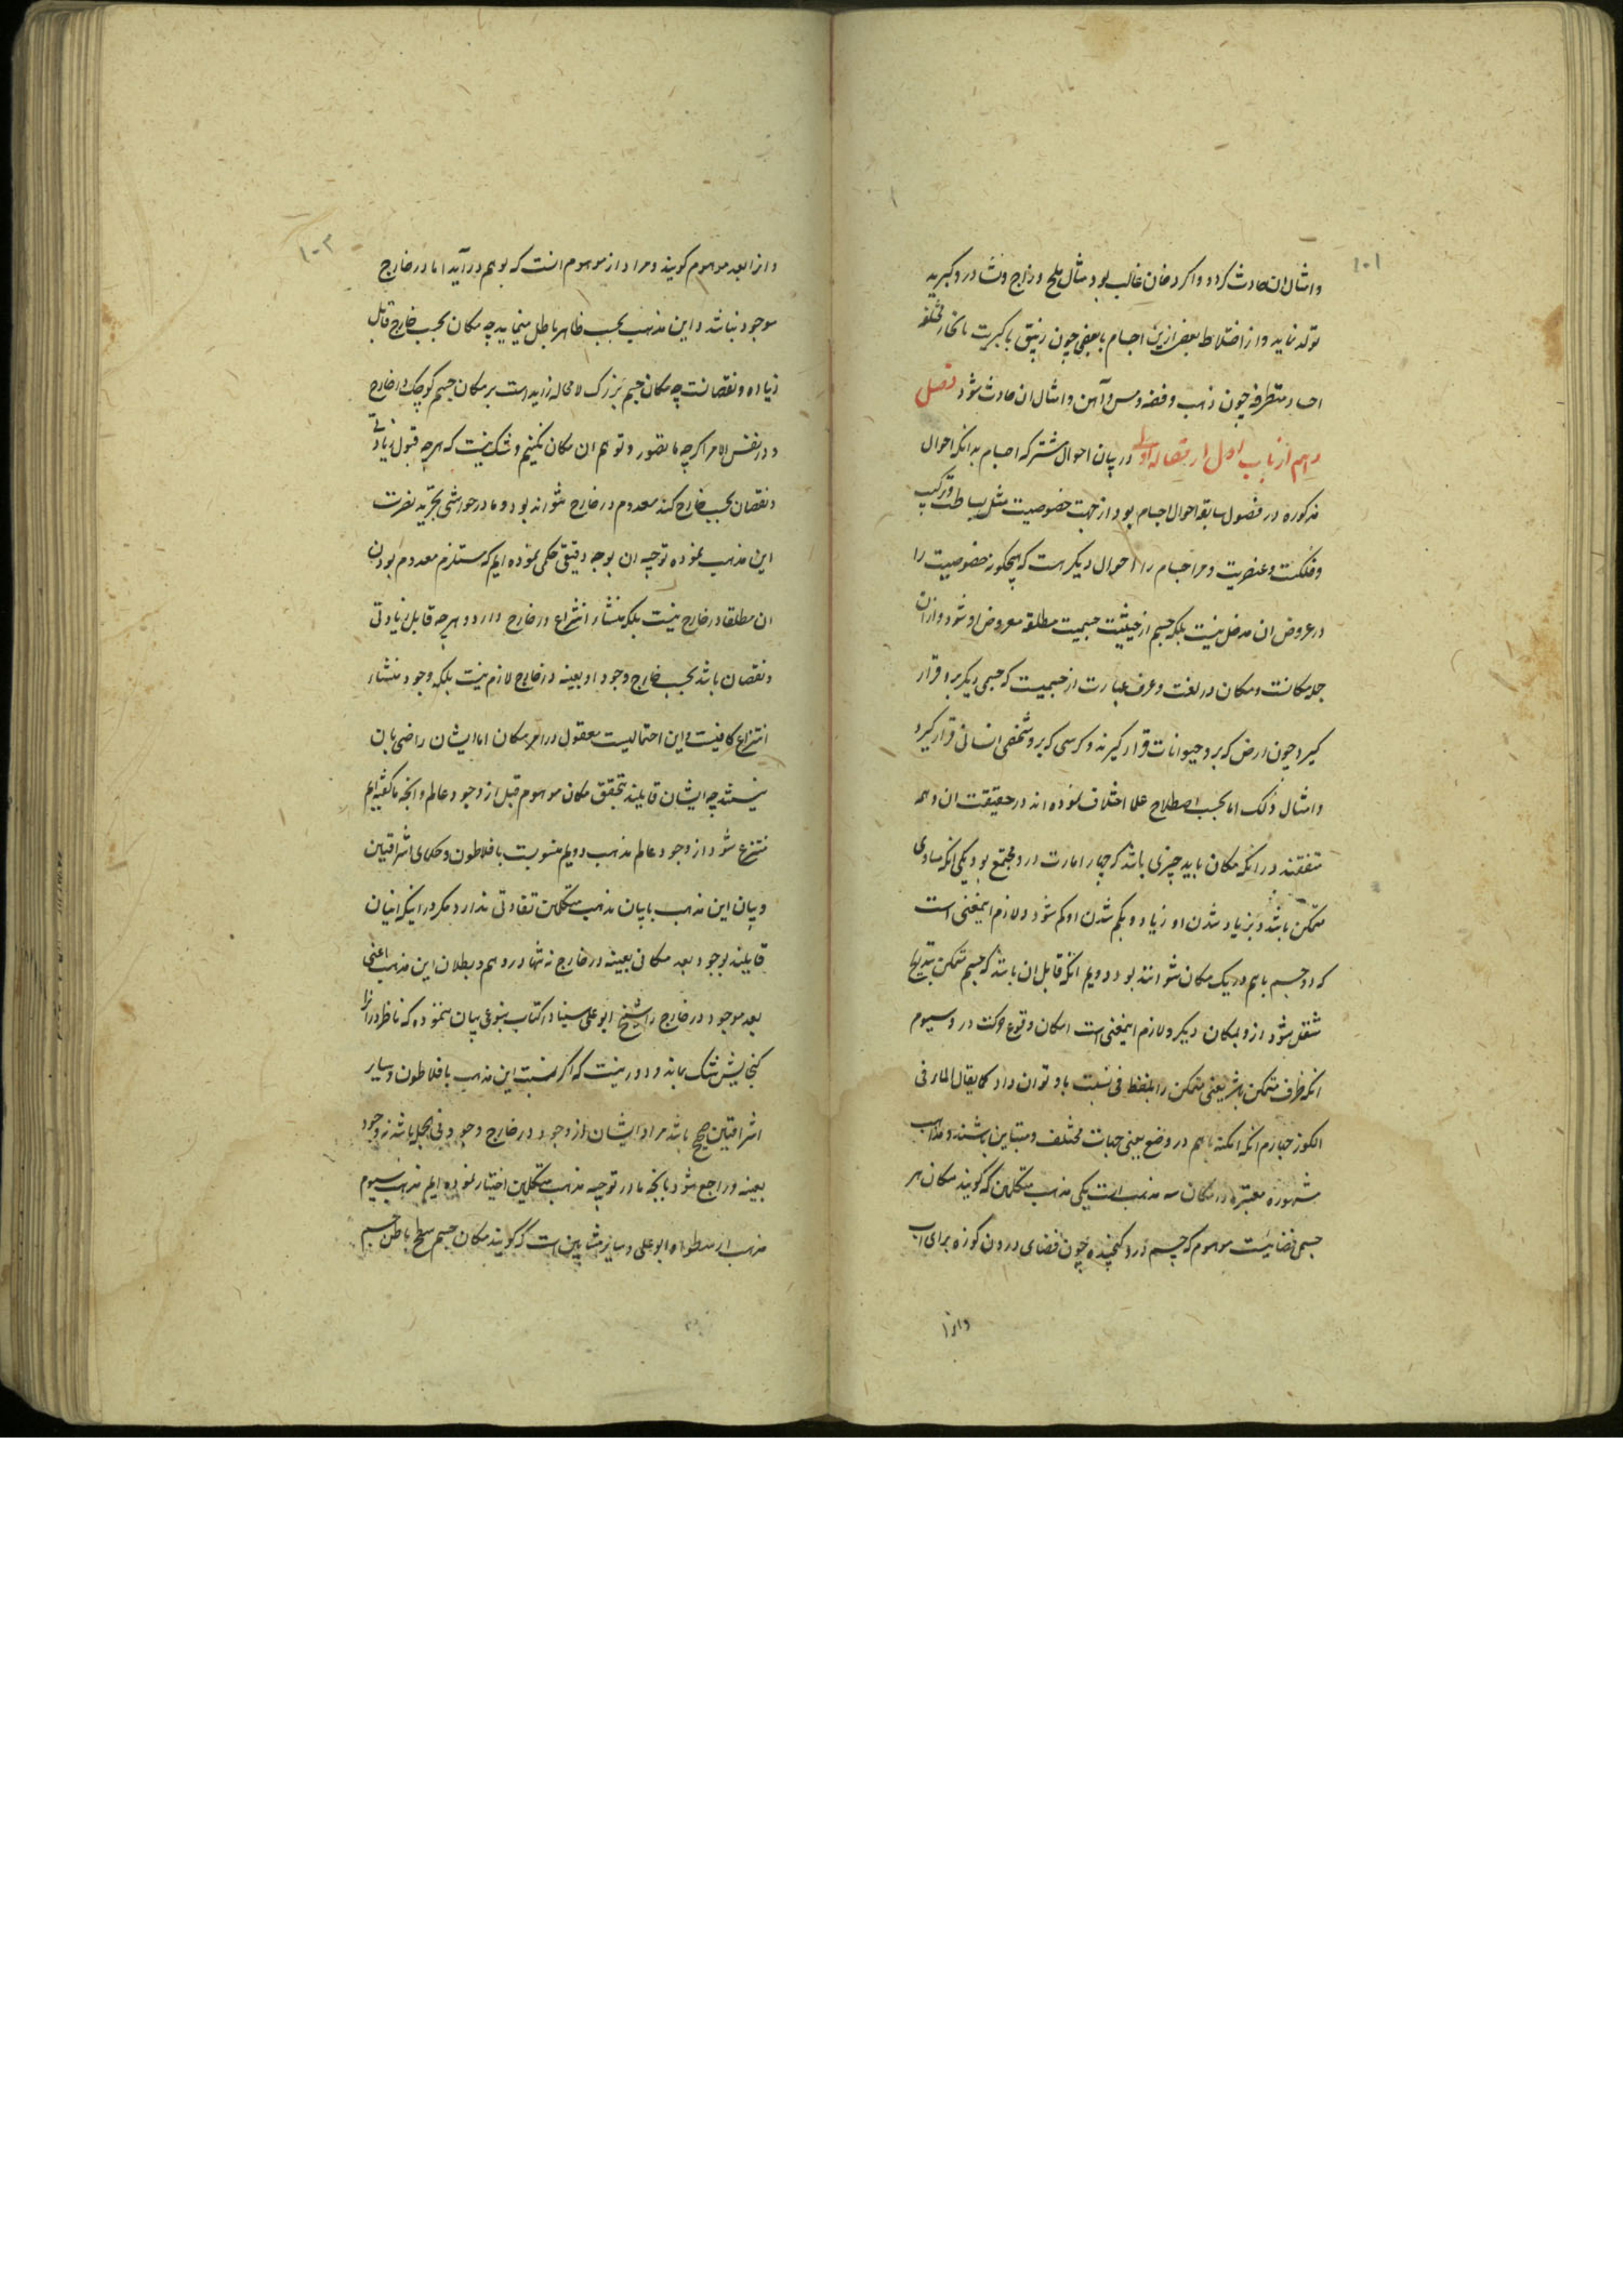 ۱۰۱
و امثال ان حادث کردد و اکر دخان غالب بود مثال ملح و زاج ونشادر و کبریت
تولد نماید و از اختلاط بعض ازین اجسام با بعضی چون زیبق با کبریت بانحاء مختلفه
اجساد متطرقه چون ذهب و فضه و مس و آهن و امثال ان حادث شود فصل
دهم از باب اول از مقاله اولی در بیان احوال مشترکه اجسام بدانکه احوال
مذکوره در فصول سابقه احوال اجسام بود از جهت خصوصیت مثل بساطت و ترکیب
و فلکیت و عنصریت و مر اجسام را احوال دیکر هست که هیچکونه خصوصیت را
در عروض ان مدخل نیست بلکه جسم از حیثیت جسمیت مطلقه معروض او شود و ازان
جمله مکانست و مکان در لغت و عرف عبارت از جسمیست که جسمی دیکر برو قرار
کیرد چون ارض که برو حیوانات قرار کیرند و کرسی که برو شخصی انسانی قرار کیرد
و امثال ذلک اما بحسب اصطلاح علما اختلاف نموده اند در حقیقت ان و همه
متفقند در انکه مکان باید چیزی باشد که چهار امارت در و مجتمع بود یکی انکه مساوی
متمکن باشد و بزیاد شدن او زیاد و بکم شدن او کم شود و لازم اینمعنی است
که دو جسم با هم در یک مکان نتوانند بود دویم انکه قابل ان باشد که جسم متمکن بتدریج
منتقل شود ازو بمکان دیکر و لازم اینمعنی است امکان وقوع حرکت در و سیوم
انکه ظرف متمکن باشد یعنی متمکن را بلفظ فی نسبت باو توان داد کما یقال الماء فی
الکوز چهارم انکه امکنه با هم در وضع یعنی جهات مختلف و متباین باشند و مذاهب
مشهوره معتبره در مکان سه مذهب است یکی مذهب متکلمین که کویند مکان هر
جسمی فضاییست موهوم که جسم درو کنجیده چون فضای درون کوزه برای اب
و انرا
۱۰۲
و انرا بعد موهوم کویند و مراد از موهوم انست که بوهم در آید اما در خارج
موجود نباشد و این مذهب بحسب ظاهر باطل مینماید چه مکان بحسب خارج قابل
زیاده و نقصانست چه مکان جسم بزرک لا محاله زاید است بر مکان جسم کوچک در خارج
و در نفس الامر اکرچه ما تصور و توهم ان مکان نکنیم و شک نیست که هرچه قبول زیادتی
و نقصان بحسب خارج کند معدوم در خارج نتواند بود و ما در حواشی تجرید نصرت
این مذهب نموده توجیه ان بوجه دقیق حکمی نموده ایم که مستلزم معدوم بودن
ان مطلقا در خارج نیست بلکه منشاء انتزاع در خارج دارد و هرچه قابل زیادتی
و نقصان باشد بحسب خارج وجود او بعینه در خارج لازم نیست بلکه وجود منشاء
انتزاع کافیست و این احتمالیست معقول در امر مکان اما ایشان راضی بان
نیستند چه ایشان قایلند بتحقق مکان موهوم قبل از وجود عالم و انچه ما کفته ایم
منتزع شود از وجود عالم مذهب دویم منسوبست بافلاطون و حکمای اشراقیین
و بیان این مذهب با بیان مذهب متکلمین تفاوتی ندارد مکر در اینکه اینان
قایلند بوجود بعد مکانی بعینه در خارج نه تنها در وهم و بطلان این مذهب اعنی
بعد موجود در خارج را شیخ ابو علی سینا در کتاب بنوعی بیان ننموده که ناظر در انرا
کنجایش شک بماند و دور نیست که اکر نسبت این مذهب بافلاطون و سایر
اشراقیین صحیح باشد مراد ایشان از وجود در خارج وجود فی الجمله باشد نه وجود
بعینه و راجع شود بانچه ما در توجیه مذهب متکلمین اختیار نموده ایم مذهب سیوم
مذهب ارسطو و ابو علی و سایر مشایین است که کویند مکان جسم سطح باطن جسم